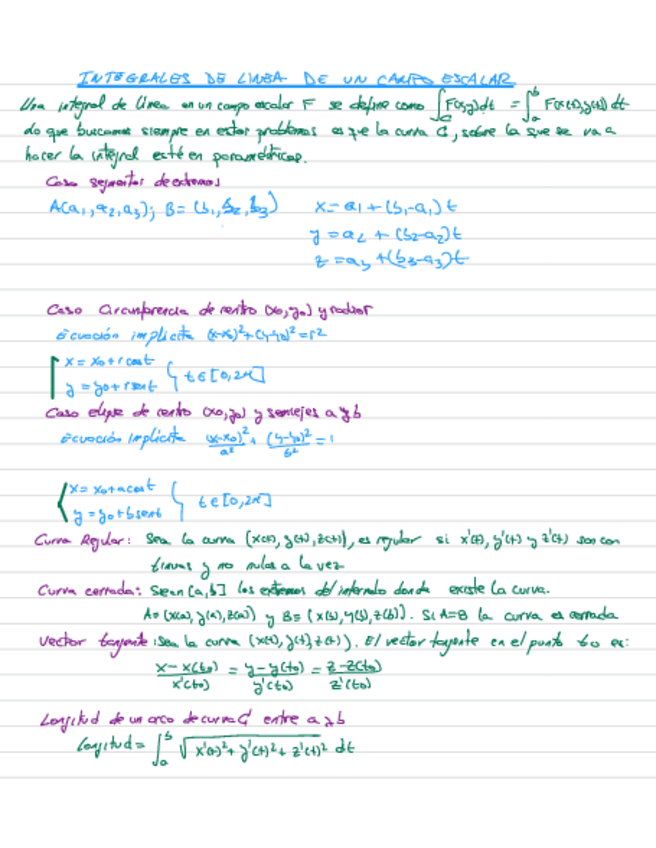 INTEGRALES DE LINEA DE UN CAMPO ESCALAR
Una integral de línea en un campo escalar F se define como ∫_C F(x,y)dt = ∫_a^b F(x(t),y(t)) dt
do que buscamos siempre en estos problemas es que la curva C, sobre la que se va a
hacer la integral esté en paramétricas.
Caso segmentos de extremos
A(a1, a2, a3); B = (b1, b2, b3) x = a1 + (b1-a1)t
y = a2 + (b2-a2)t
z = a3 + (b3-a3)t
Caso Circunferencia de centro (x0, y0) y radio r
Ecuación implícita (x-x0)²+(y-y0)²=r²
x = x0 + r cos t
y = y0 + r sen t } t ∈ [0, 2π]
Caso elipse de centro (x0, y0) y semiejes a y b
Ecuación Implícita (x-x0)²/a² + (y-y0)²/b² = 1
{ x = x0 + a cos t
y = y0 + b sen t } t ∈ [0, 2π]
Curva Regular: Sea la curva (x(t), y(t), z(t)), es regular si x'(t), y'(t) y z'(t) son con
tinuas y no nulas a la vez
Curva cerrada: Sean [a, b] los extremos del intervalo donde existe la curva.
A = (x(a), y(a), z(a)) y B = (x(b), y(b), z(b)). Si A=B la curva es cerrada
Vector tangente: Sea la curva (x(t), y(t), z(t)). El vector tangente en el punto t0 es:
x-x(t0)/x'(t0) = y-y(t0)/y'(t0) = z-z(t0)/z'(t0)
Longitud de un arco de curva C entre a y b
Longitud = ∫_a^b √(x'(t)² + y'(t)² + z'(t)²) dt